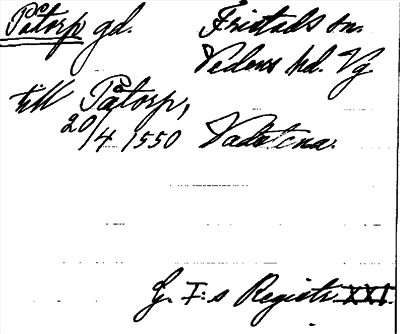 Påtorp gd. Fristads sn.
Vedens hd. Vg
till Påtorp,
20/4 1550 Vadstena.
G. I:s Registr. XXI.